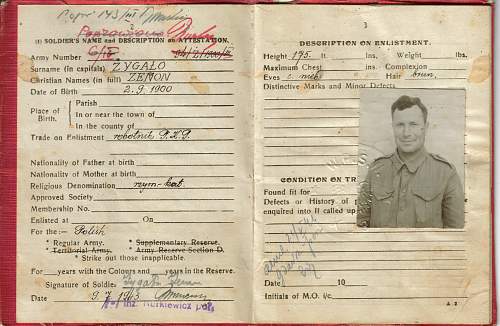 2
(1) SOLDIER'S NAME and DESCRIPTION on ATTESTATION.
Army Number
Surname (in capitals) ZYGALO
Christian Names (in full) ZENON
Date of Birth 2.9.1900
Place of Birth
Parish
In or near the town of
In the county of
Trade on Enlistment robotnik
Nationality of Father at birth
Nationality of Mother at birth
Religious Denomination rzym-kat.
Approved Society
Membership No.
Enlisted at On
For the:— Polish
* Regular Army. * Supplementary Reserve.
* Territorial Army. * Army Reserve Section D.
* Strike out those inapplicable.
For years with the Colours and years in the Reserve.
Signature of Soldier Zygalo Zenon
Date
inż. Kurkiewicz
3
DESCRIPTION ON ENLISTMENT.
Height 175 ft. ins. Weight lbs.
Maximum Chest ins. Complexion
Eyes Hair
Distinctive Marks and Minor Defects
CONDITION ON TR
Found fit for
Defects or History of p
enquired into if called up
Date 10
Initials of M.O. i/c